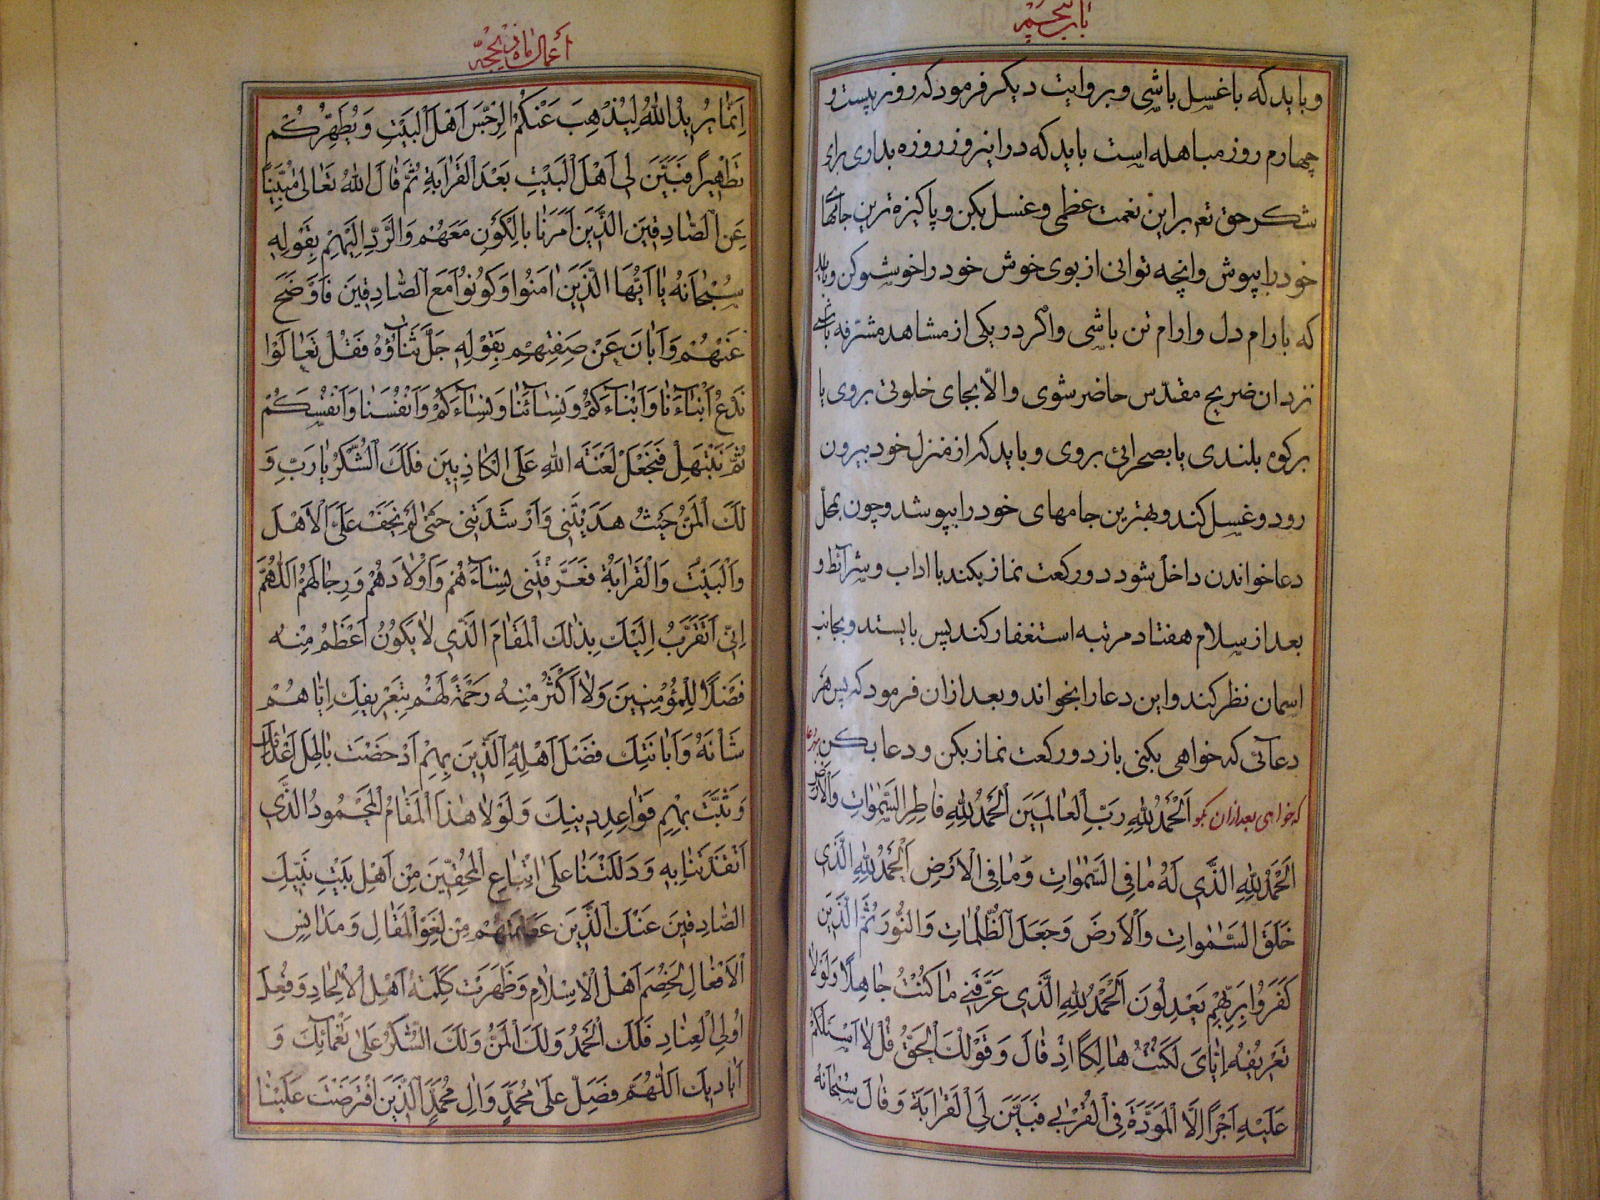 باب پنجم
و باید که با غسل باشی و بروایت دیکر فرمود که روز بیست و
چهارم روز مباهله است باید که در اینروز روزه بداری برای
شکر حق تعم بر این نعمت عظمی و غسل بکن و پاکیزه ترین جامهای
خود را بپوش و انچه توانی از بوی خوش خود را خوشبو کن و باید
که بارام دل و ارام تن باشی و اکر در یکی از مشاهد مشرفه باشی
نزد ان ضریح مقدس حاضر شوی و الّا بجای خلوتی بروی یا
بر کوه بلندی یا بصحرائی بروی و باید که از منزل خود بیرون
رود و غسل کند و بهترین جامهای خود را بپوشد و چون بمحل
دعا خواندن داخل شود دو رکعت نماز بکند با اداب و شرائط و
بعد از سلام هفتاد مرتبه استغفار کند پس بایستد و بجانب
اسمان نظر کند و این دعا را بخواند و بعد از ان فرمود که پس هر
دعائی که خواهی بکنی باز دو رکعت نماز بکن و دعا بکن
که خواهی بعد از ان بکو اَلْحَمْدُ لِلّٰهِ رَبِّ الْعالَمینَ اَلْحَمْدُ لِلّٰهِ فاطِرِ السَّمٰواتِ وَالْاَرْضِ
اَلْحَمْدُ لِلّٰهِ الَّذی لَهُ مٰا فِی السَّمٰواتِ وَمٰا فِی الْاَرْضِ اَلْحَمْدُ لِلّٰهِ الَّذی
خَلَقَ السَّمٰواتِ وَالْاَرْضَ وَجَعَلَ الظُّلُماتِ وَالنُّورَ ثُمَّ الَّذینَ
کَفَرُوا بِرَبِّهِمْ یَعْدِلُونَ اَلْحَمْدُ لِلّٰهِ الَّذی عَرَّفَنی مٰا کُنْتُ جٰاهِلاً وَلَوْلا
تَعْریفُهُ اِیّٰایَ لَکُنْتُ هٰالِکًا اِذْ قٰالَ وَقَوْلُکَ الْحَقُّ قُلْ لا اَسْئَلُکُمْ
عَلَیْهِ اَجْرًا اِلَّا الْمَوَدَّةَ فِی الْقُرْبٰی فَبَیَّنَ لِیَ الْقَرٰابَةَ وَقٰالَ سُبْحٰانَهُ
أعمال ماه ذیحجّه
اِنَّمٰا یُریدُ اللّٰهُ لِیُذْهِبَ عَنْکُمُ الرِّجْسَ اَهْلَ الْبَیْتِ وَیُطَهِّرَکُمْ
تَطْهیرًا فَبَیَّنَ لی اَهْلَ الْبَیْتِ بَعْدَ الْقَرٰابَةِ ثُمَّ قٰالَ اللّٰهُ تَعٰالٰی مُبَیِّنًا
عَنِ الصّٰادِقینَ الَّذینَ اَمَرْنٰا بِالْکَوْنِ مَعَهُمْ وَالرَّدِّ اِلَیْهِمْ بِقَوْلِهِ
سُبْحٰانَهُ یٰا اَیُّهَا الَّذینَ اٰمَنُوا وَکُونُوا مَعَ الصّٰادِقینَ فَاَوْضَحَ
عَنْهُمْ وَاَبٰانَ عَنْ صِفَتِهِمْ بِقَوْلِهِ جَلَّ ثَنٰاؤُهُ فَقُلْ تَعٰالَوْا
نَدْعُ اَبْنٰاءَنٰا وَاَبْنٰاءَکُمْ وَنِسٰاءَنٰا وَنِسٰاءَکُمْ وَاَنْفُسَنٰا وَاَنْفُسَکُمْ
ثُمَّ نَبْتَهِلْ فَنَجْعَلْ لَعْنَتَ اللّٰهِ عَلَی الْکٰاذِبینَ فَلَکَ الشُّکْرُ یٰا رَبِّ وَ
لَکَ الْمَنُّ حَیْثُ هَدَیْتَنی وَاَرْشَدْتَنی حَتّٰی لَمْ یَخْفَ عَلَیَّ الْاَهْلُ
وَالْبَیْتُ وَالْقَرٰابَةُ فَعَرَّفْتَنی نِسٰاءَهُمْ وَاَوْلٰادَهُمْ وَرِجٰالَهُمْ اَللّٰهُمَّ
اِنّی اَتَقَرَّبُ اِلَیْکَ بِذٰلِکَ الْمَقٰامِ الَّذی لٰا یَکُونُ اَعْظَمُ مِنْهُ
فَضْلًا لِلْمُؤْمِنینَ وَلٰا اَکْثَرُ مِنْهُ رَحْمَةً لَهُمْ بِتَعْریفِکَ اِیّٰاهُمْ
شَانَهُ وَاِبٰانَتِکَ فَضْلَ اَهْلِهِ الَّذینَ بِهِمْ اَدْحَضْتَ بٰاطِلَ اَعْدٰائِکَ
وَثَبَّتَّ بِهِمْ قَوٰاعِدَ دینِکَ وَلَوْلٰا هٰذَا الْمَقٰامُ الْمَحْمُودُ الَّذی
اَنْقَذْتَنٰا بِهِ وَدَلَلْتَنٰا عَلَی اتِّبٰاعِ الْمُحِقّینَ مِنْ اَهْلِ بَیْتِ نَبِیِّکَ
الصّٰادِقینَ عَنْکَ الَّذینَ عَصَمْتَهُمْ مِنْ لَغْوِ الْمَقٰالِ وَمَدٰانِسِ
الْاَفْعٰالِ لَخُصِمَ اَهْلُ الْاِسْلٰامِ وَظَهَرَتْ کَلِمَةُ اَهْلِ الْاِلْحٰادِ وَفِعْلُ
اُولِی الْعِنٰادِ فَلَکَ الْحَمْدُ وَلَکَ الْمَنُّ وَلَکَ الشُّکْرُ عَلٰی نَعْمٰائِکَ وَ
اَیٰادیکَ اَللّٰهُمَّ فَصَلِّ عَلٰی مُحَمَّدٍ وَاٰلِ مُحَمَّدٍ الَّذینَ افْتَرَضْتَ عَلَیْنٰا